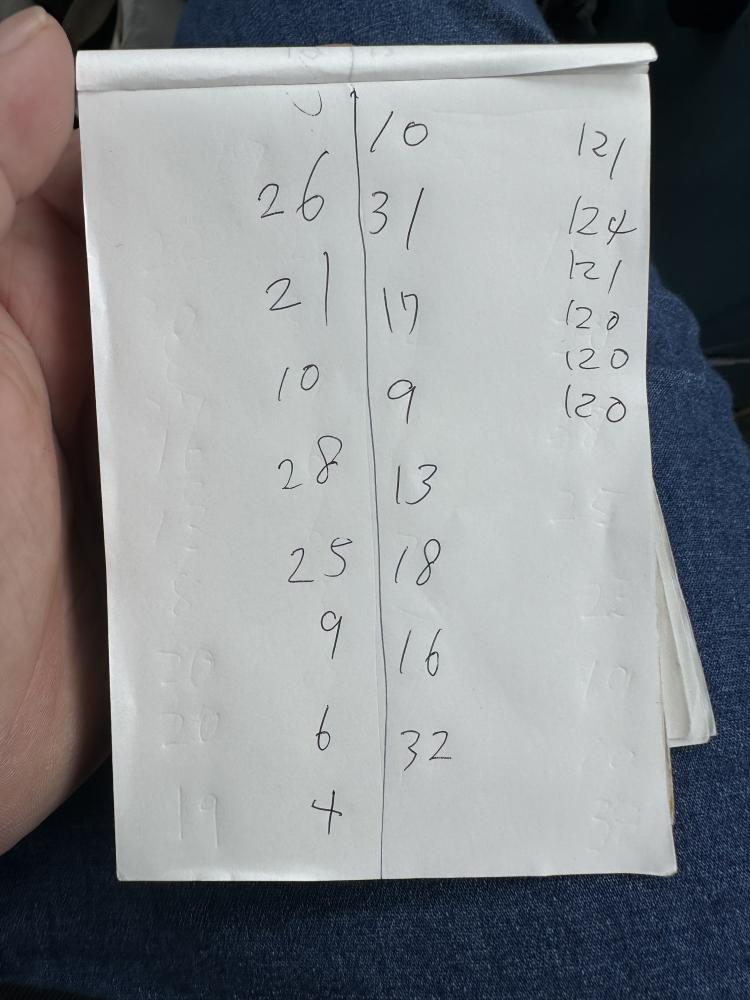 10 121
26 31 124
121
21 17 120
120
10 9 120
28 13
25 18
9 16
6 32
4